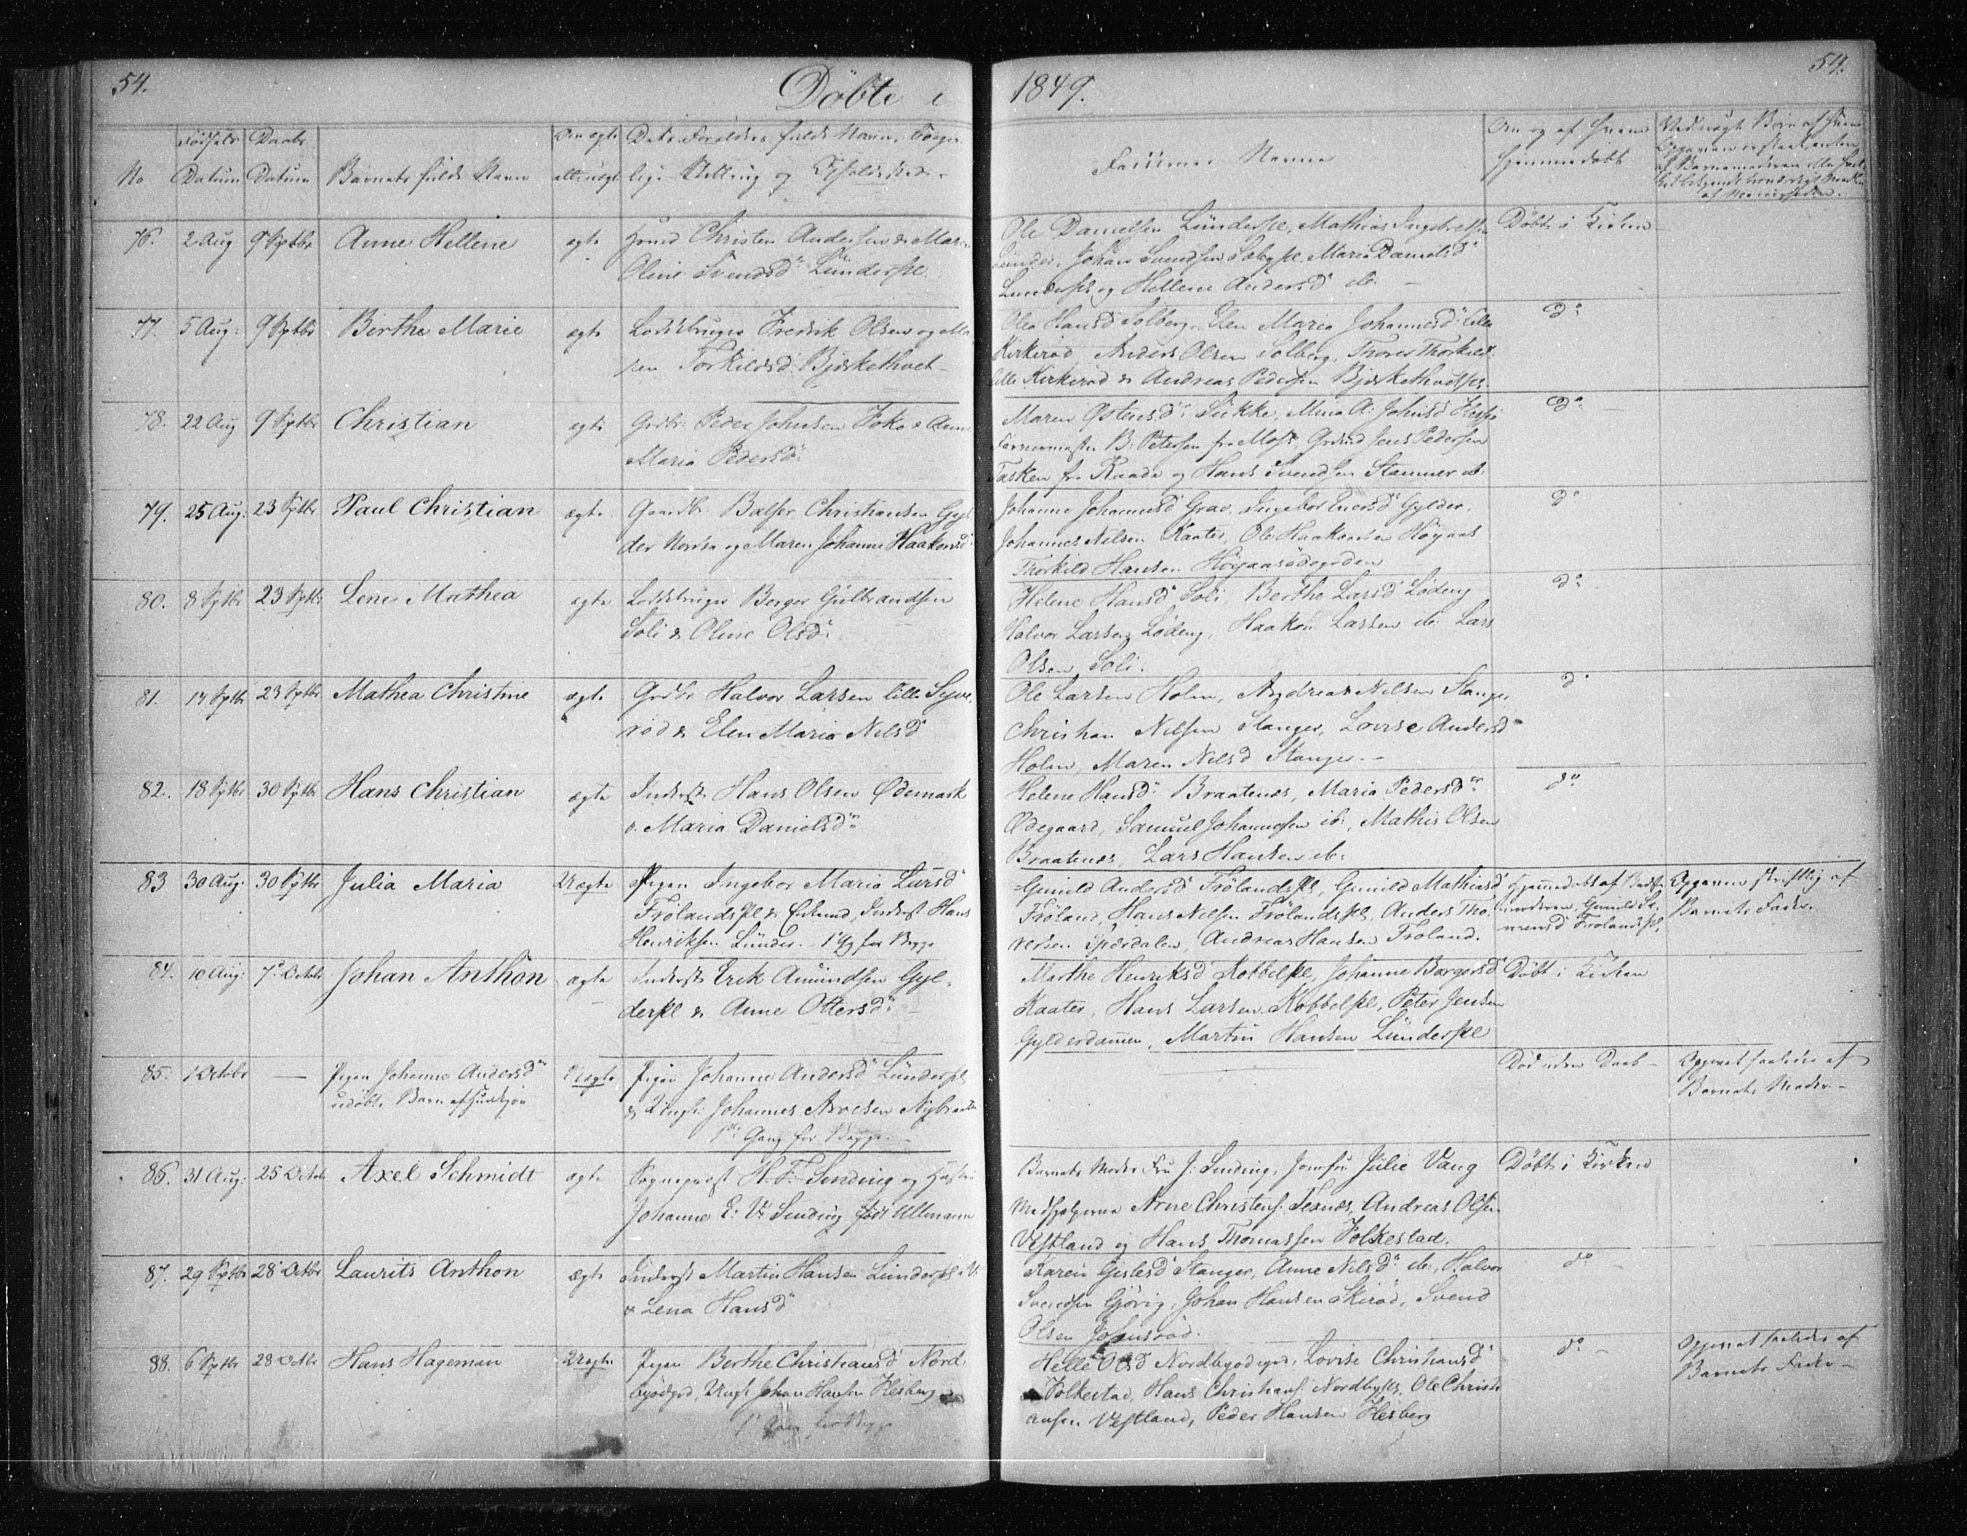 54.
Døbte i 1849.
54.
No
Fødsels Datum
Daabs Datum
Barnets fulde Navn
Om ægte eller uægte
Dets Forældres fulde Navn, Borgerlige Stilling og Opholdssted.
Faddernes Navne
Om og af hvem hjemmedøbt
76. 2 Aug 9 Sptbr Anne Hellene ægte Huusmd Christen Andersen & Maren
Oline Svendsd Lünderspl.
Ole Danielsen Lünderspl, Mathias Ingebretsen
Lünder, Johan Svendsen Solbypl, Maria Danielsd
Lunderspl og Hellene Andersd ib.
Døbt i Kirken
77. 5 Aug: 9 Sptbr Birthe Marie ægte Lodsbruger Fredrik Olsen og Ma-
ren Torkildsd Bjerkethvet
Olea Hansd Solberg, Elen Maria Johannesd Lille
Kirkerød, Anders Olsen Solberg, Thorer Thorkilds
lille Kirkerød & Andreas Pedersen Bjerkethvedtpl.
do
78. 22 Aug 9 Sptbr Christian ægte Grdbr: Peder Johnsen Foko & Anne
Maria Pedersd
Maren Østensd Sukke, Mina A: Johnsd
B: Petersen fra Moss, Jens Pedersen
Tasken fr. Raade og Hans Svendsen Stamnes ib.
do
79. 25 Aug. 23 Sptbr Paul Christian ægte Gaardbr Balser Christiansen Gyl-
der Nordre og Maren Johanne Haakonsd
Johanne Johannesd Grav, Ingebor Enersd Gylder,
Johannes Nilsen Kaates, Ole Haakonsen Høgaas
Thorkild Hansen Høgaasødegrden
do
80. 8 Sptbr 23 Sptbr Lene Mathea ægte Lodsbruger Berger Gulbrandsen
Soli & Oline Olsd
Helene Hansd Soli, Berthe Larsd Lødeng
Halvor Larsen Lødeng, Haakon Larsen ib. Lars
Olsen Soli.
do
81. 14 Sptbr 23 Sptbr Mathea Christine ægte Grdbr Halvor Larsen lille Syve-
rød & Elen Maria Nilsd
Ole Larsen Holm, Andreas Nilsen Stanger
Christian Nilsen Stanger, Lovise Andersd
Holm, Maren Nilsd Stanger.
do
82. 18 Sptbr 30 Sptbr Hans Christian ægte Inderst Hans Olsen Ødemark
& Maria Danielsd
Helene Hansd Braatenes, Maria Pedersd
Ødegaard, Samuel Johannesen ib., Mathis Olsen
Braatenes, Lars Hansen ib.
do
83 30 Aug. 30 Sptbr Julia Maria Uægte Pigen Ingebor Maria Larsd
Frølandspl & Enkemd, Inderst Hans
Henriksen Lünder. 1 Gg for Begge
Gunild Andersd Frølandspl, Gunild Mathiasd
Frøland, Hans Nilsen Frølandspl, Anders Tho-
resen Spærdalen, Andreas Hansen Frøland.
Hjemmedøbt af
Gunild
Frølandspl.
Opgaven skriftlig af
Barnets Fader.
84. 10 Aug. 7 Octobr Johan Anthon ægte Inderst Erik Amundsen Gyl-
derspl & Anne Ottersd
Marthe Henriksd Kobbelspl, Johanne Borgersd
Kaater, Hans Larsen Kobbelspl, Peter Jensen
Gylderdammen, Martin Hansen Lünderspl
Døbt i Kirken
85. 1 Octobr — Pigen Johanne Andersd
udøbte Barn af Qvindkjøn
Uægte Pigen Johanne Andersd Lünderspl
& Ungk: Johannes Arvesen Nybraaten
1ste Gang for Begge
Død uden Daab
Opgivet saaledes af
Barnets Moder
86. 31 Aug: 25 Octobr Axel Schmidt ægte Sognepræst H. F. Sinding og Hustru
Johanne E: V: Sinding født Ullmann
Barnets Moder Fru J. Sinding, Jomfru Julie Vang
Medhjelperne Arne Christens. Texnæs, Andreas Olsen
Vestland og Hans Thomassen Folkestad.
Døbt i Kirken
87. 29 Sptbr 28 Octbr Laurits Anthon ægte Inderst Martin Hansen Lünderspl
& Lena Hansd
Karen Gislesd Stanger, Anne Nilsd ib., Halvor
Svendsen Gjøvig, Johan Hansen Skirød, Svend
Olsen Johnsrød.
do
88. 6 Sptbr 28 Octbr Hans Hageman Uægte Pigen Berthe Christiansd Nord-
byødegrd, Ungk. Johan Hansen Hesberg
1 Gang for Begge
Helle Olsd Nordbyødegrd, Lovise Christiansd
Folkestad, Hans Christians. Nordbypl, Ole Christi-
ansen Vestland, Peder Hansen Hesberg
do
Opgivet saaledes af
Barnets Fader